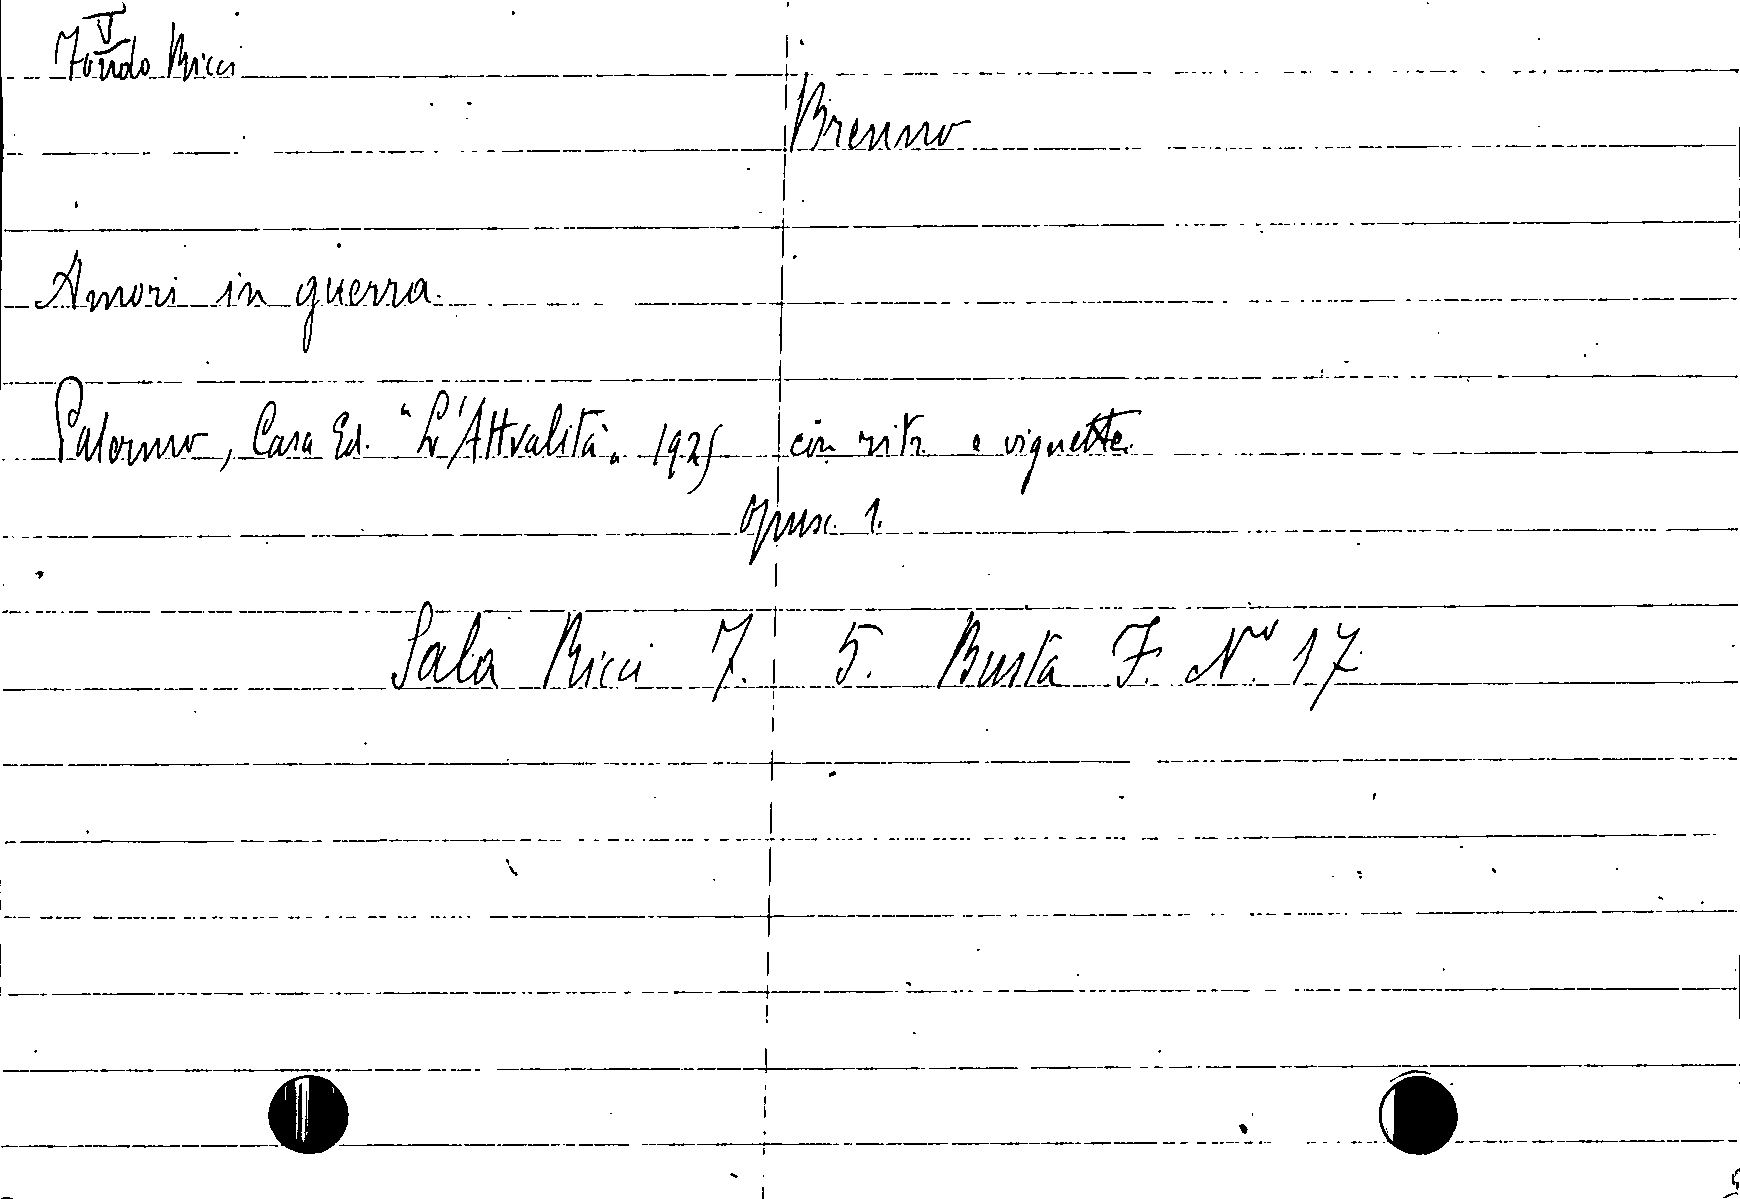 V
Fondo Ricci
Brenno
Amori in guerra.
Palermo, Casa Ed. "L'Attualità" 1925 con ritr. e vignette.
opusc. 1.
Sala Ricci 7. 5. Busta F. N° 17